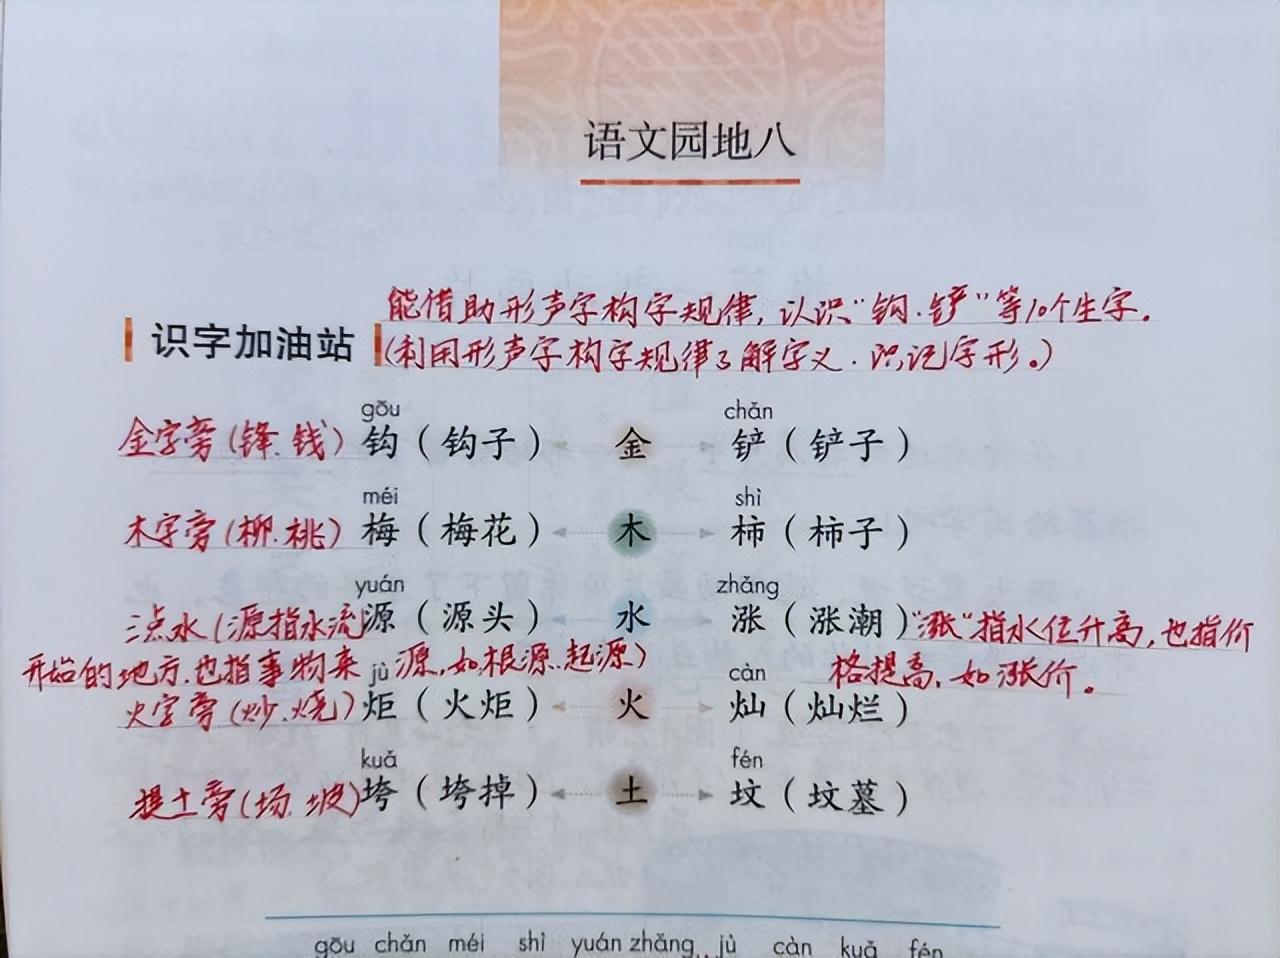 语文园地八
能借助形声字构字规律,认识“钩.铲”等10个生字.
识字加油站
(利用形声字构字规律了解字义.识记字形。)
gōu chǎn
金字旁(锋.钱) 钩(钩子) 金 铲(铲子)
méi shì
木字旁(柳.桃) 梅(梅花) 木 柿(柿子)
yuán zhǎng
三点水(源指水流 源(源头) 水 涨(涨潮) “涨”指水位升高,也指价
开始的地方.也指事物来源,如根源.起源) 格提高,如涨价。
jù càn
火字旁(炒.烧) 炬(火炬) 火 灿(灿烂)
kuǎ fén
提土旁(场.坡) 垮(垮掉) 土 坟(坟墓)
gōu chǎn méi shì yuán zhǎng jù càn kuǎ fén